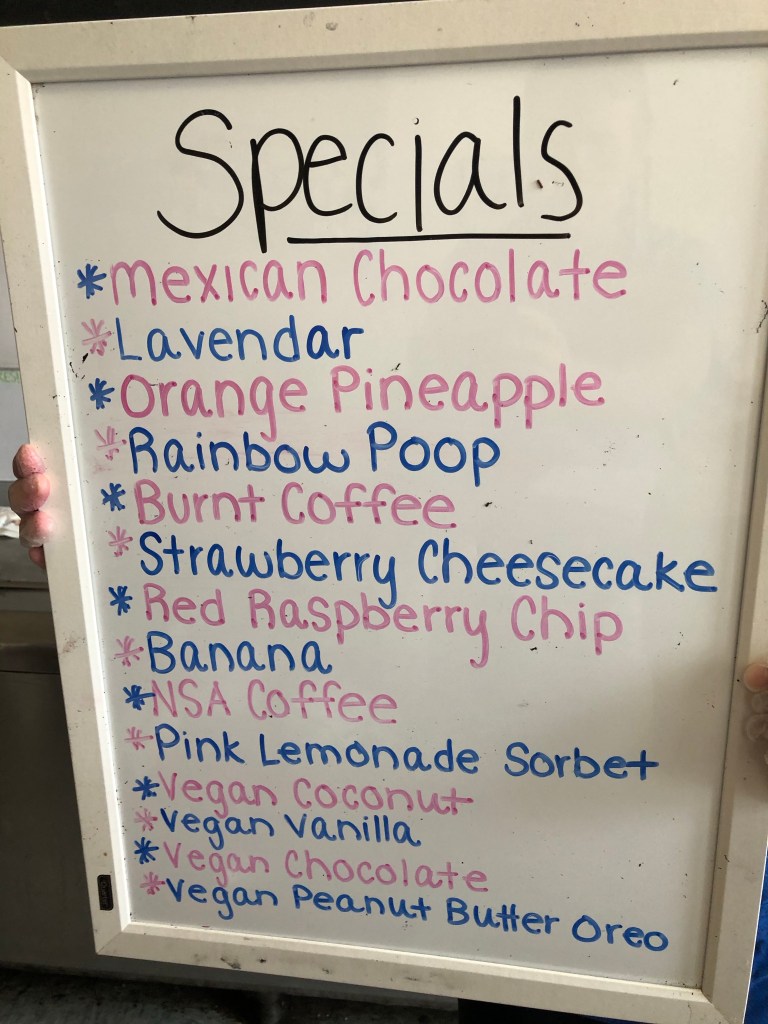 Specials
*Mexican Chocolate
*Lavendar
*Orange Pineapple
*Rainbow Poop
*Burnt Coffee
*Strawberry Cheesecake
*Red Raspberry Chip
*Banana
*NSA Coffee
*Pink Lemonade Sorbet
*Vegan Coconut
*Vegan Vanilla
*Vegan Chocolate
*Vegan Peanut Butter Oreo